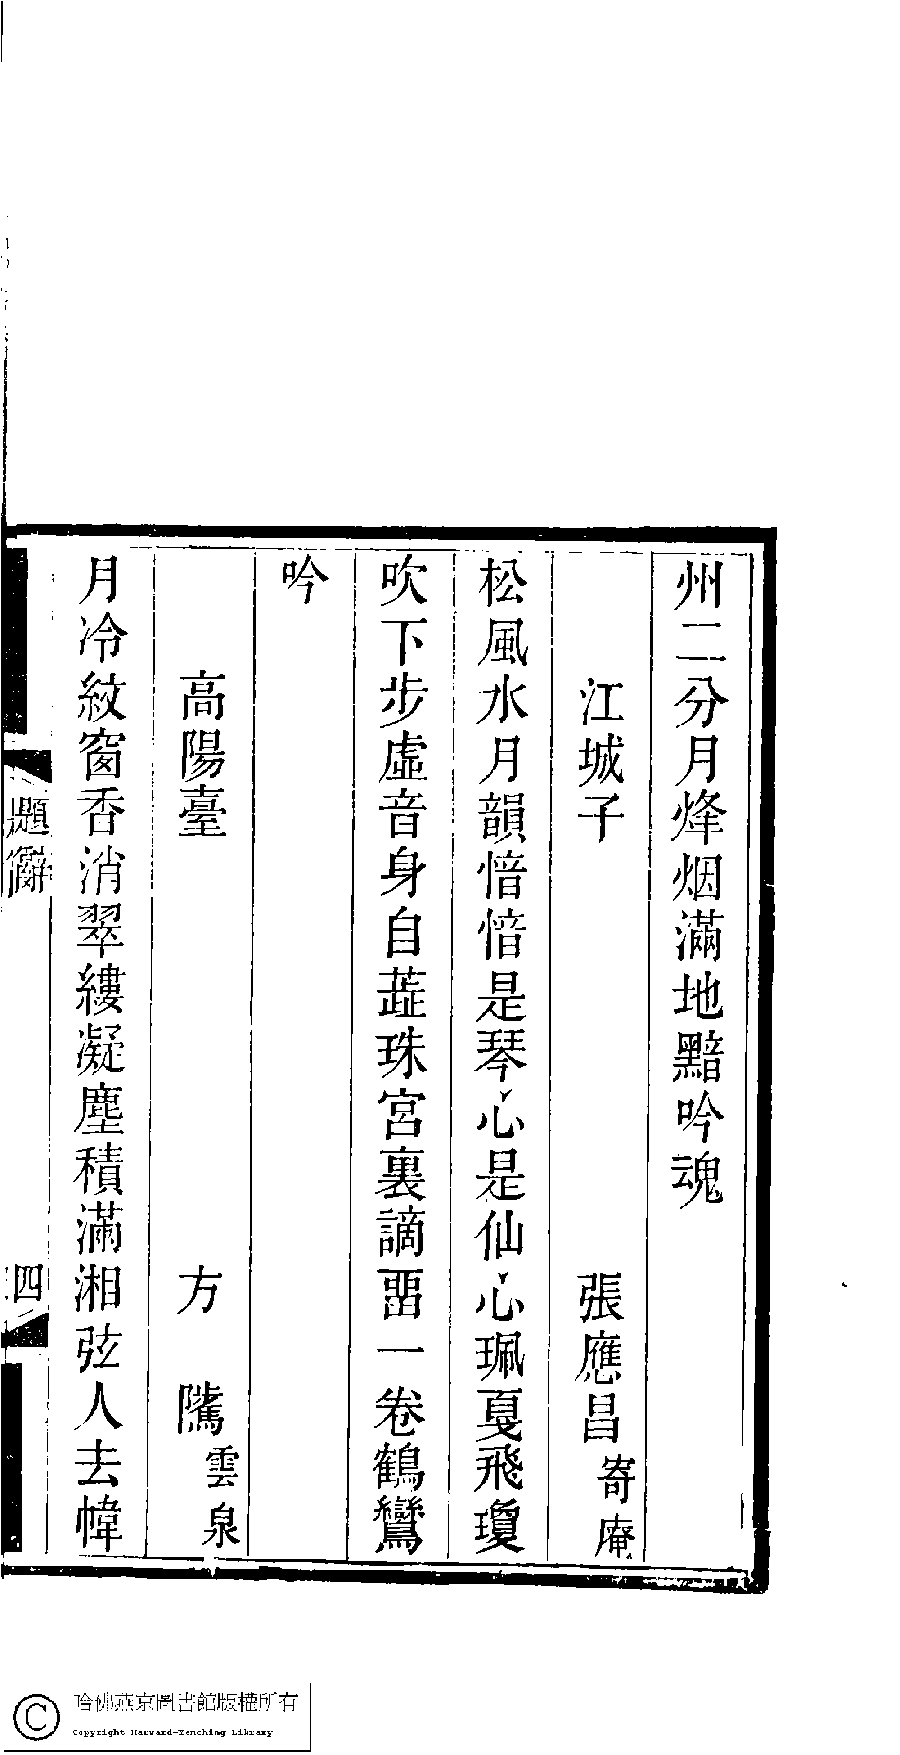 州二分月烽烟滿地黯吟魂
江城子　張應昌寄庵
松風水月韻愔愔是琴心是仙心珮戛飛瓊
吹下步虛音身自蕋珠宮裏謫畱一卷鶴鸞
吟
高陽臺　方　隲雲泉
月冷紋窗香消翠縷凝塵積滿湘弦人去幃
題辭　四
哈佛燕京圖書館版權所有
Copyright Harvard-Yenching Library